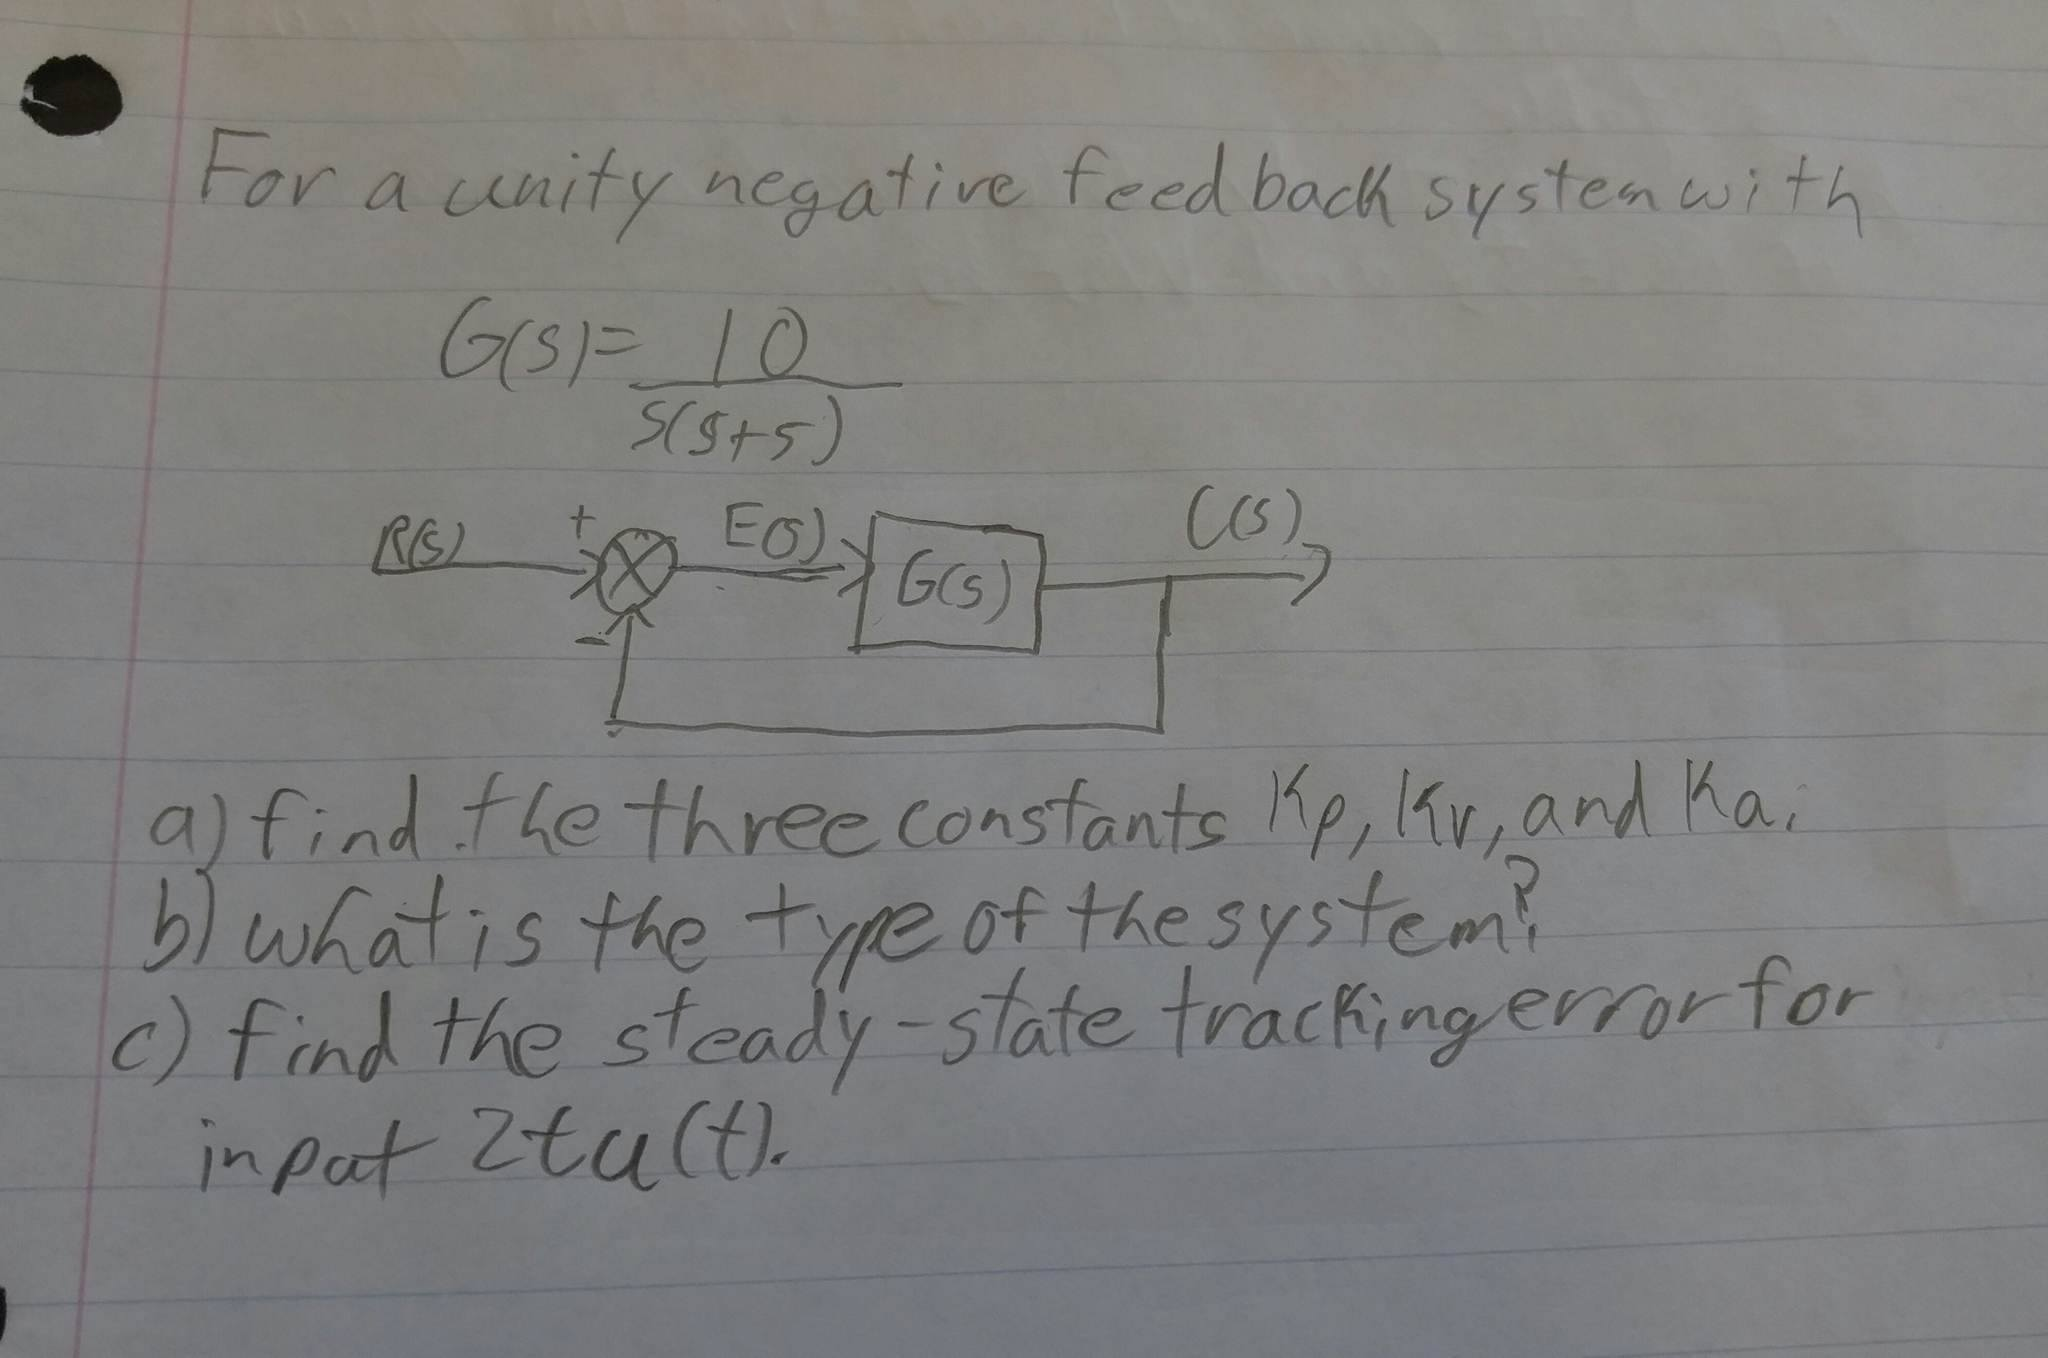 For a unity negative feedback system with
G(s)= 10
s(s+5)
R(s) + E(s) G(s) C(s)
-
a) find the three constants Kp, Kv, and Ka.
b) what is the type of the system?
c) find the steady-state tracking error for
input 2tu(t).